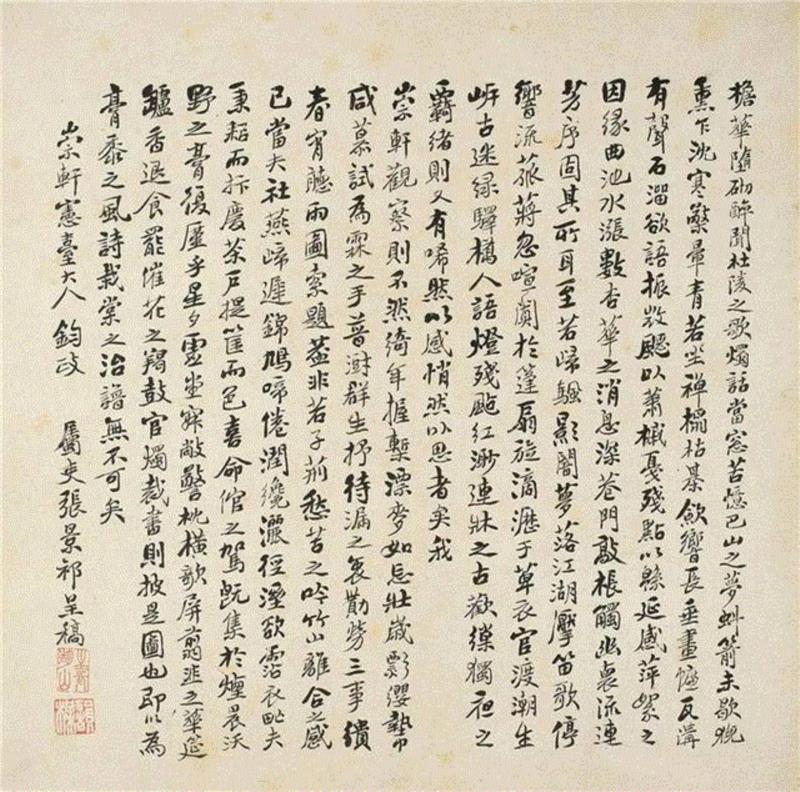 檐華隨砌醉聞杜陵之歌燭話當窓苦憶巴山之夢蚪箭未歇猊
熏乍沈寒縈暈青若坐禪榻枯棊斂響長垂畫幰瓦溝
有聲石溜欲語振敗颸以蕭槭戛殘點以緜延感萍絮之
因緣曲池水漲數杏華之消息深巷門敲棖觸幽衷流連
芳序固其所耳至若歸颿影闇夢落江湖擪笛歌停
響流菰蔣忽喧闐於篷扇旋滴瀝于草衣官渡潮生
岍古迷綠驛橋人語燈殘颭紅漸連牀之古歡縈獨袒之
羈緒則又有唏然以感悄然以思者矣我
崇軒觀察則不然綺年握槧漂麥如忘壯歲影纓墊巾
咸慕試為霖之手普澍群生抒待漏之衷勤勞三事績
春宵聽雨圖索題蓋非若子荊愁苦之吟竹山離合之感
已當夫社燕歸遲錦鳩啼倦潤纔灑徑溼欲霑衣甿夫
秉耜而抃慶茶戶提筐而色喜命倌之駕既集於煙晨沃
野之膏復屢乎星夕靈坐寐敞警枕橫歌屏翦韭之華筵
鱸香退食罷催花之羯鼓官燭裁書則披是圖也即以為
膏黍之風詩栽棠之治譜無不可矣
崇軒憲臺大人鈞政 屬吏張景祁呈稿